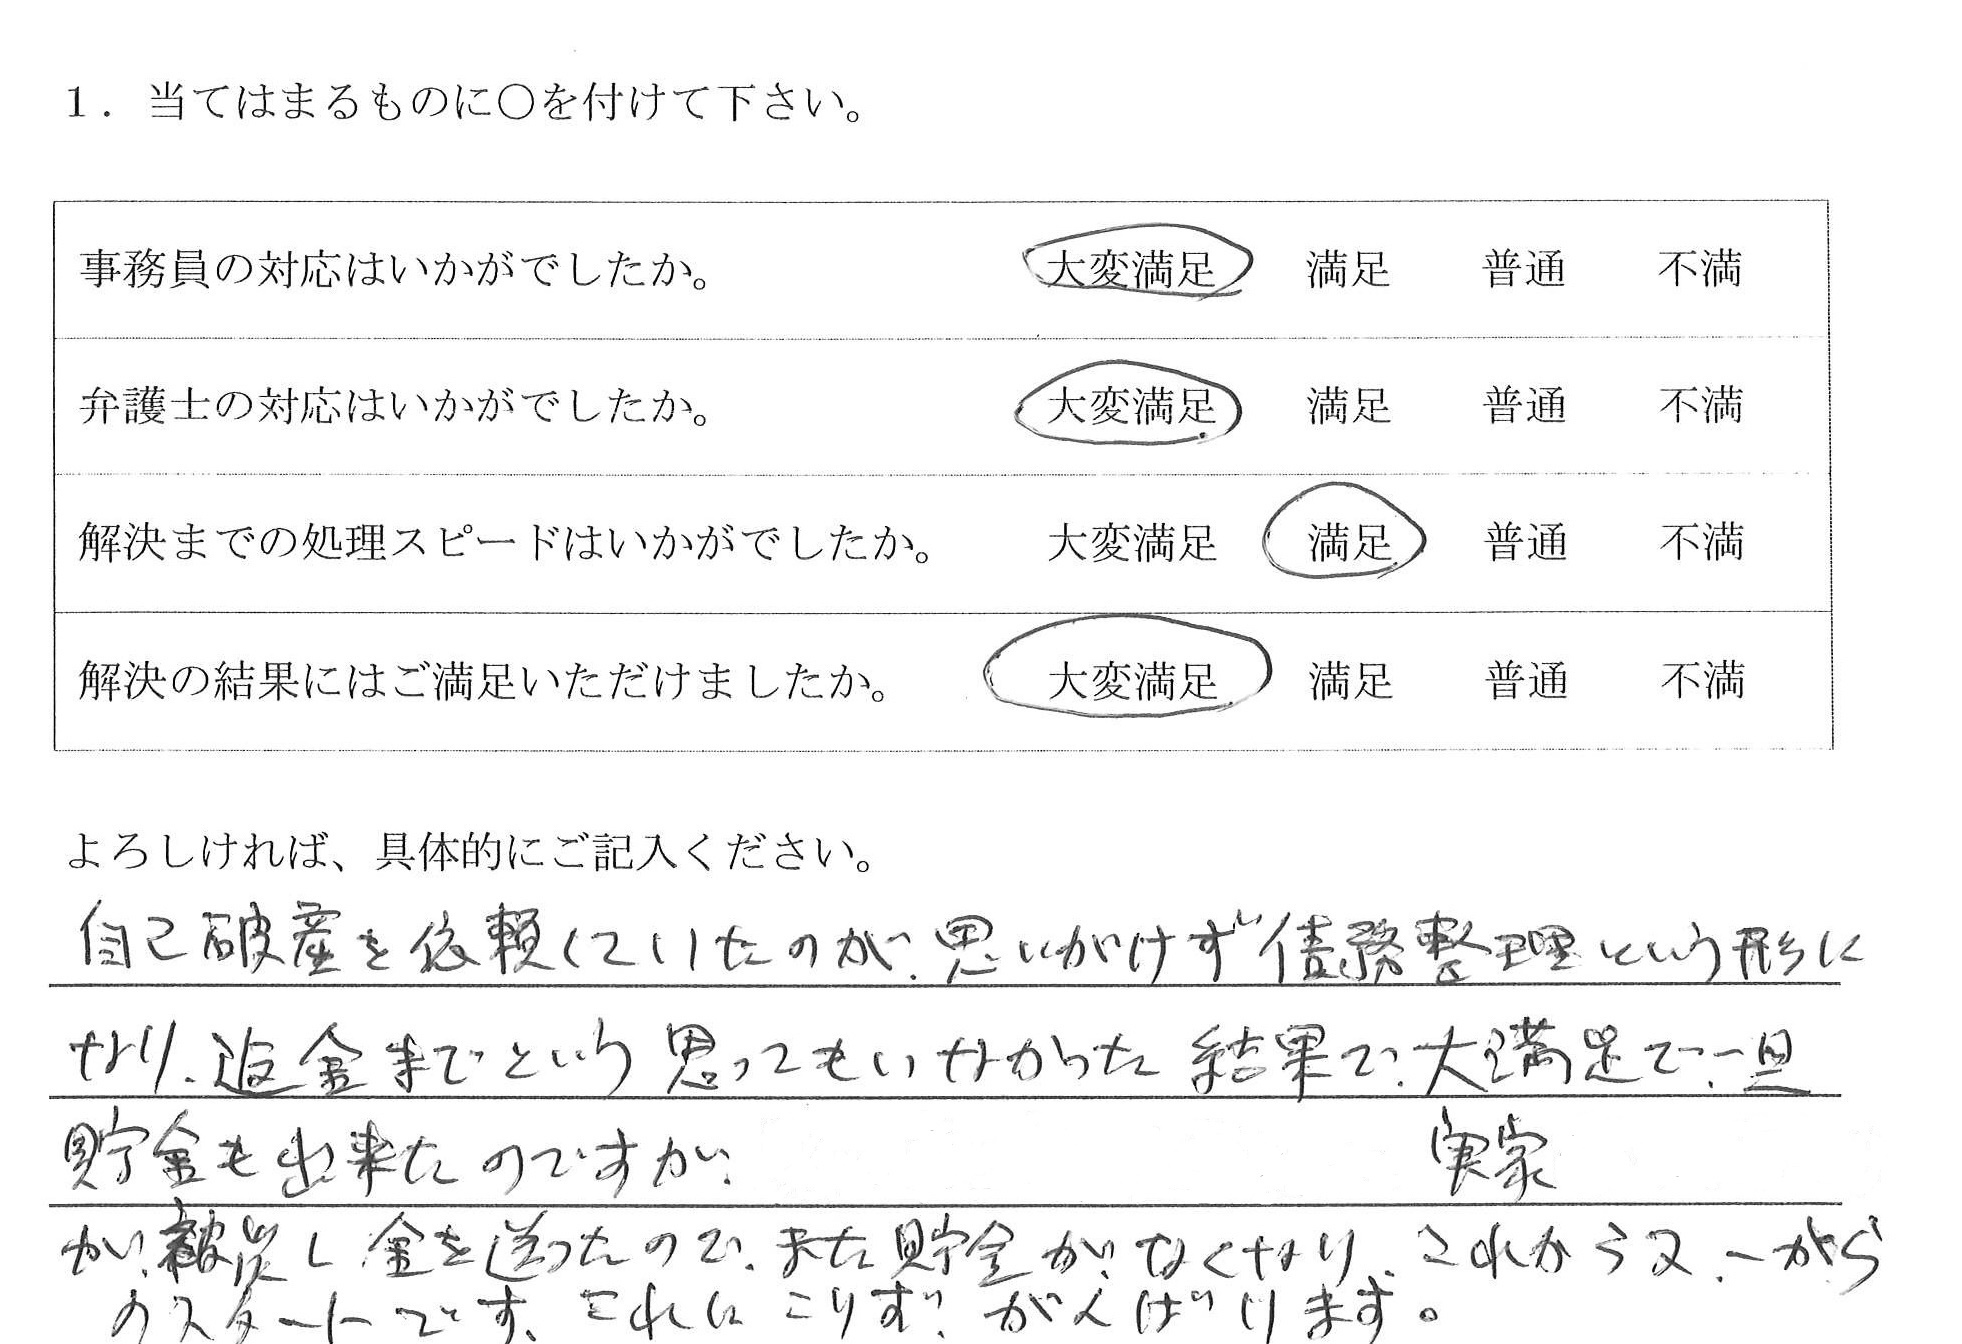 1．当てはまるものに〇を付けて下さい。
事務員の対応はいかがでしたか。 大変満足 満足 普通 不満
弁護士の対応はいかがでしたか。 大変満足 満足 普通 不満
解決までの処理スピードはいかがでしたか。 大変満足 満足 普通 不満
解決の結果にはご満足いただけましたか。 大変満足 満足 普通 不満
よろしければ、具体的にご記入ください。
自己破産を依頼していたのが、思いがけず債務整理という形に
なり、返金までという思ってもいなかった結果で、大満足で、一旦
貯金も出来たのですが、 実家
が、被災し金を送ったので、また貯金が、なくなり、これから又、一から
のスタートです、これにこりず、がんばります。